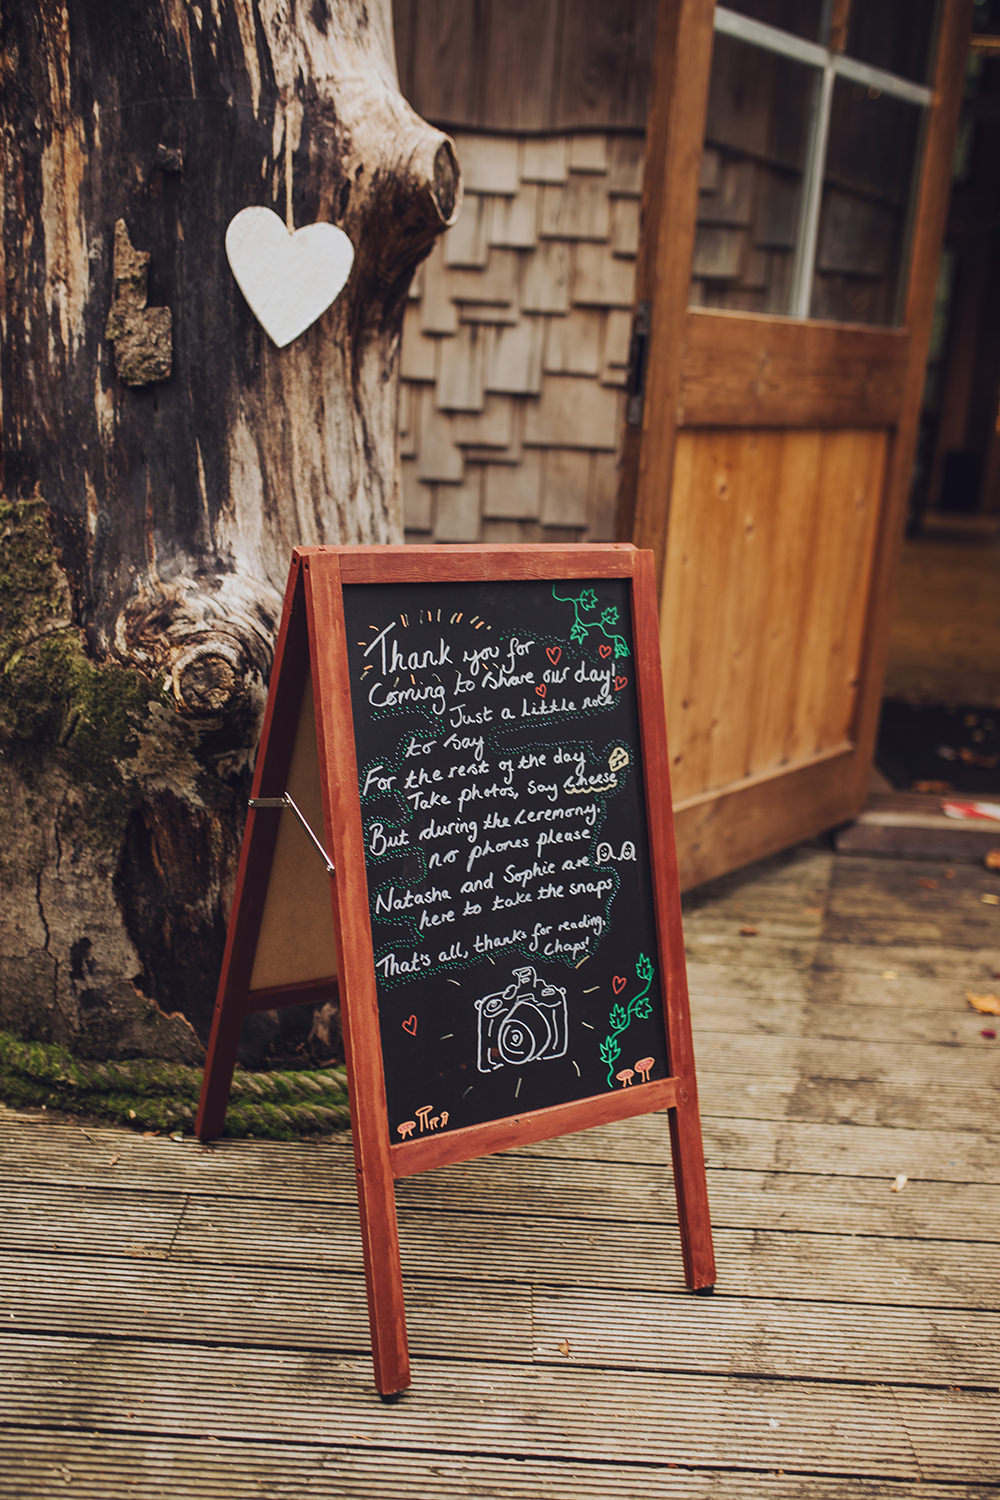 Thank you for
Coming to share our day!
Just a little note
to say
For the rest of the day
Take photos, say Cheese
But during the ceremony.
no phones please
Natasha and Sophie are
here to take the snaps
That's all, thanks for reading,
Chaps!